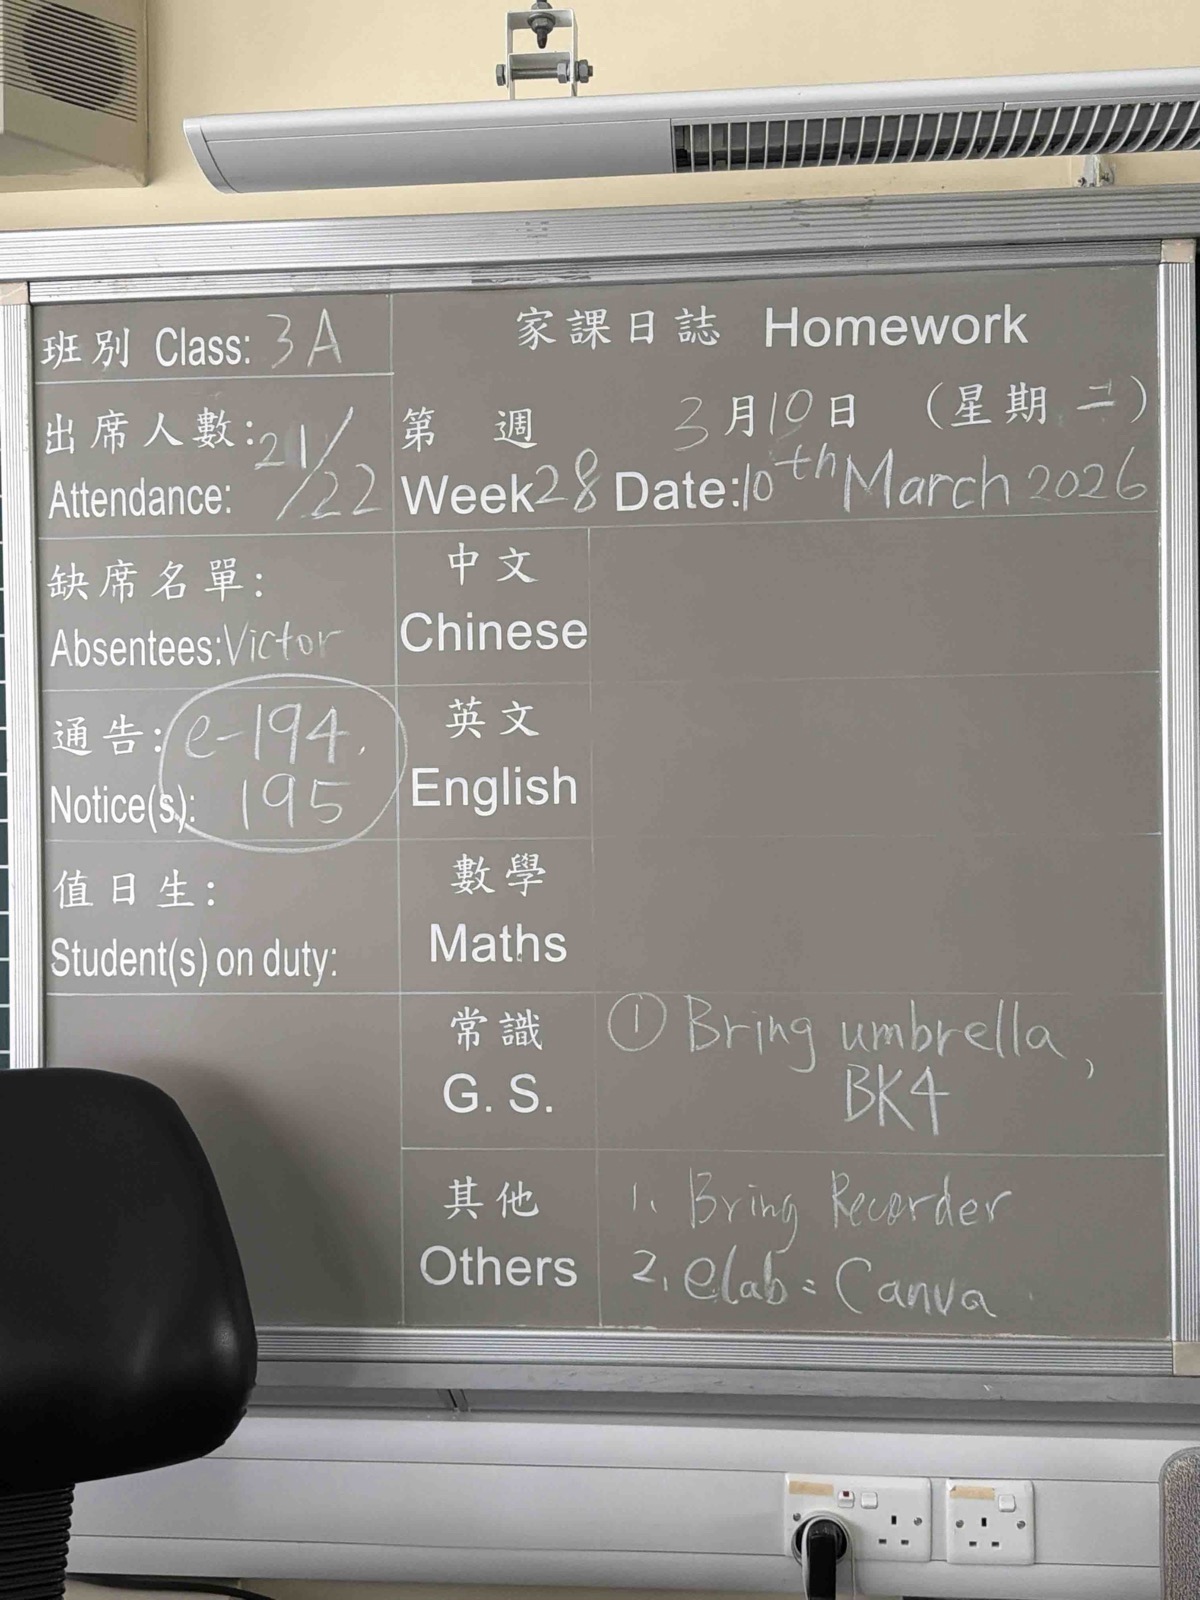 班別 Class: 3A
家課日誌 Homework
出席人數: 21/22
Attendance:
第 週 3月10日 (星期二)
Week 28 Date: 10th March 2026
缺席名單:
Absentees: Victor
通告: e-194,
Notice(s): 195
值日生:
Student(s) on duty:
中文
Chinese
英文
English
數學
Maths
常識
G. S.
① Bring umbrella,
BK4
其他
Others
1. Bring Recorder
2. elab: Canva